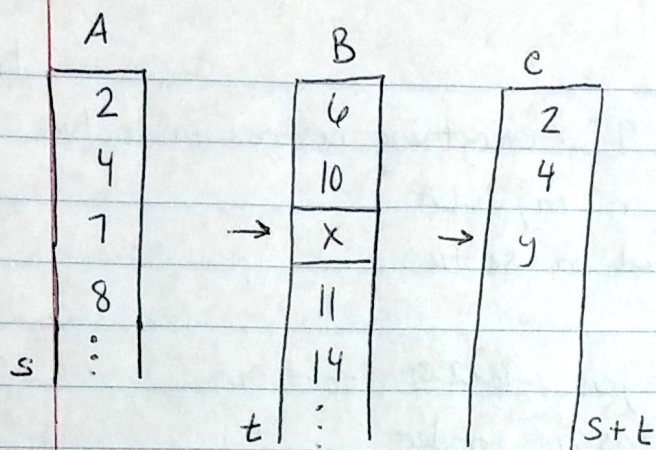 A
2
4
7
8
⋮
s
→
B
6
10
x
11
14
⋮
t
→
C
2
4
y
s+t